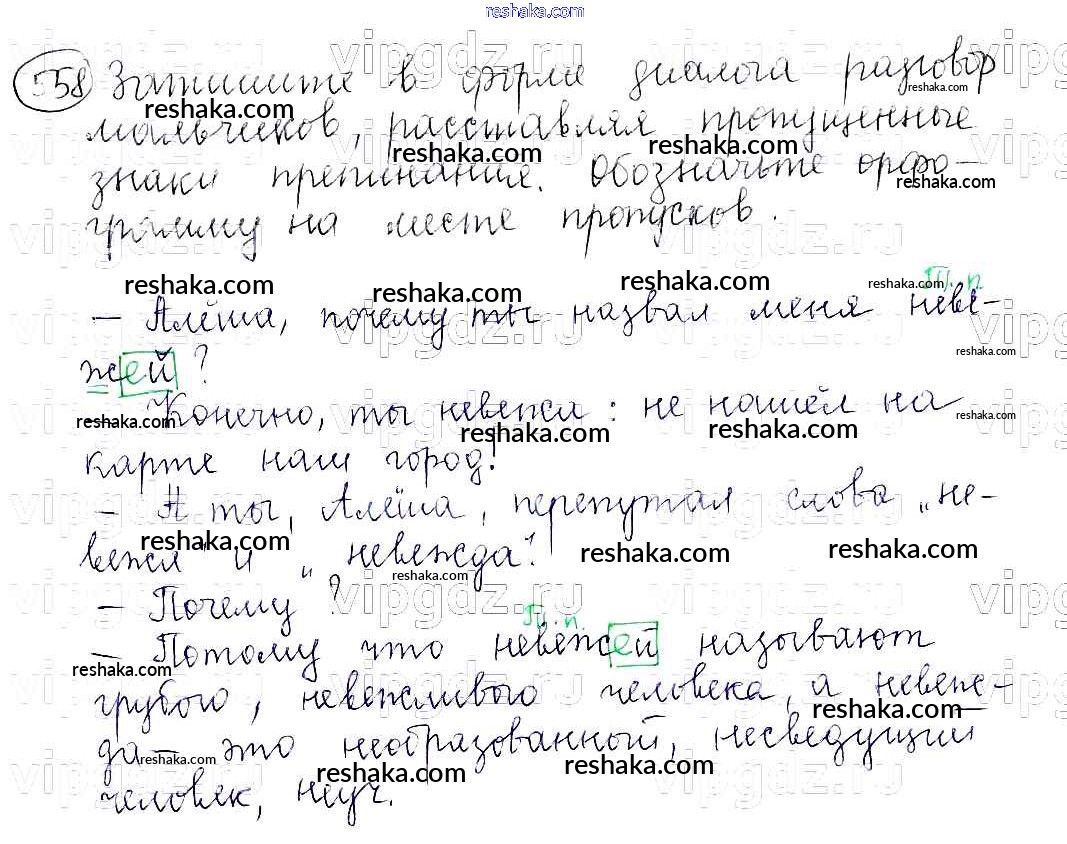 reshaka.com
558 Запишите в форме диалога разговор
мальчиков, расставляя пропущенные
знаки препинания. Обозначьте орфо-
грамму на месте пропусков.
Тв. п.
– Алёша, почему ты назвал меня неве-
жей?
– Конечно, ты невежа: не нашёл на
карте наш город!
– А ты, Алёша, перепутал слова „не-
вежа" и „невежда".
– Почему?
Тв. п.
– Потому что невежей называют
грубого, невежливого человека, а невеж-
да – это необразованный, несведущий
человек, неуч.